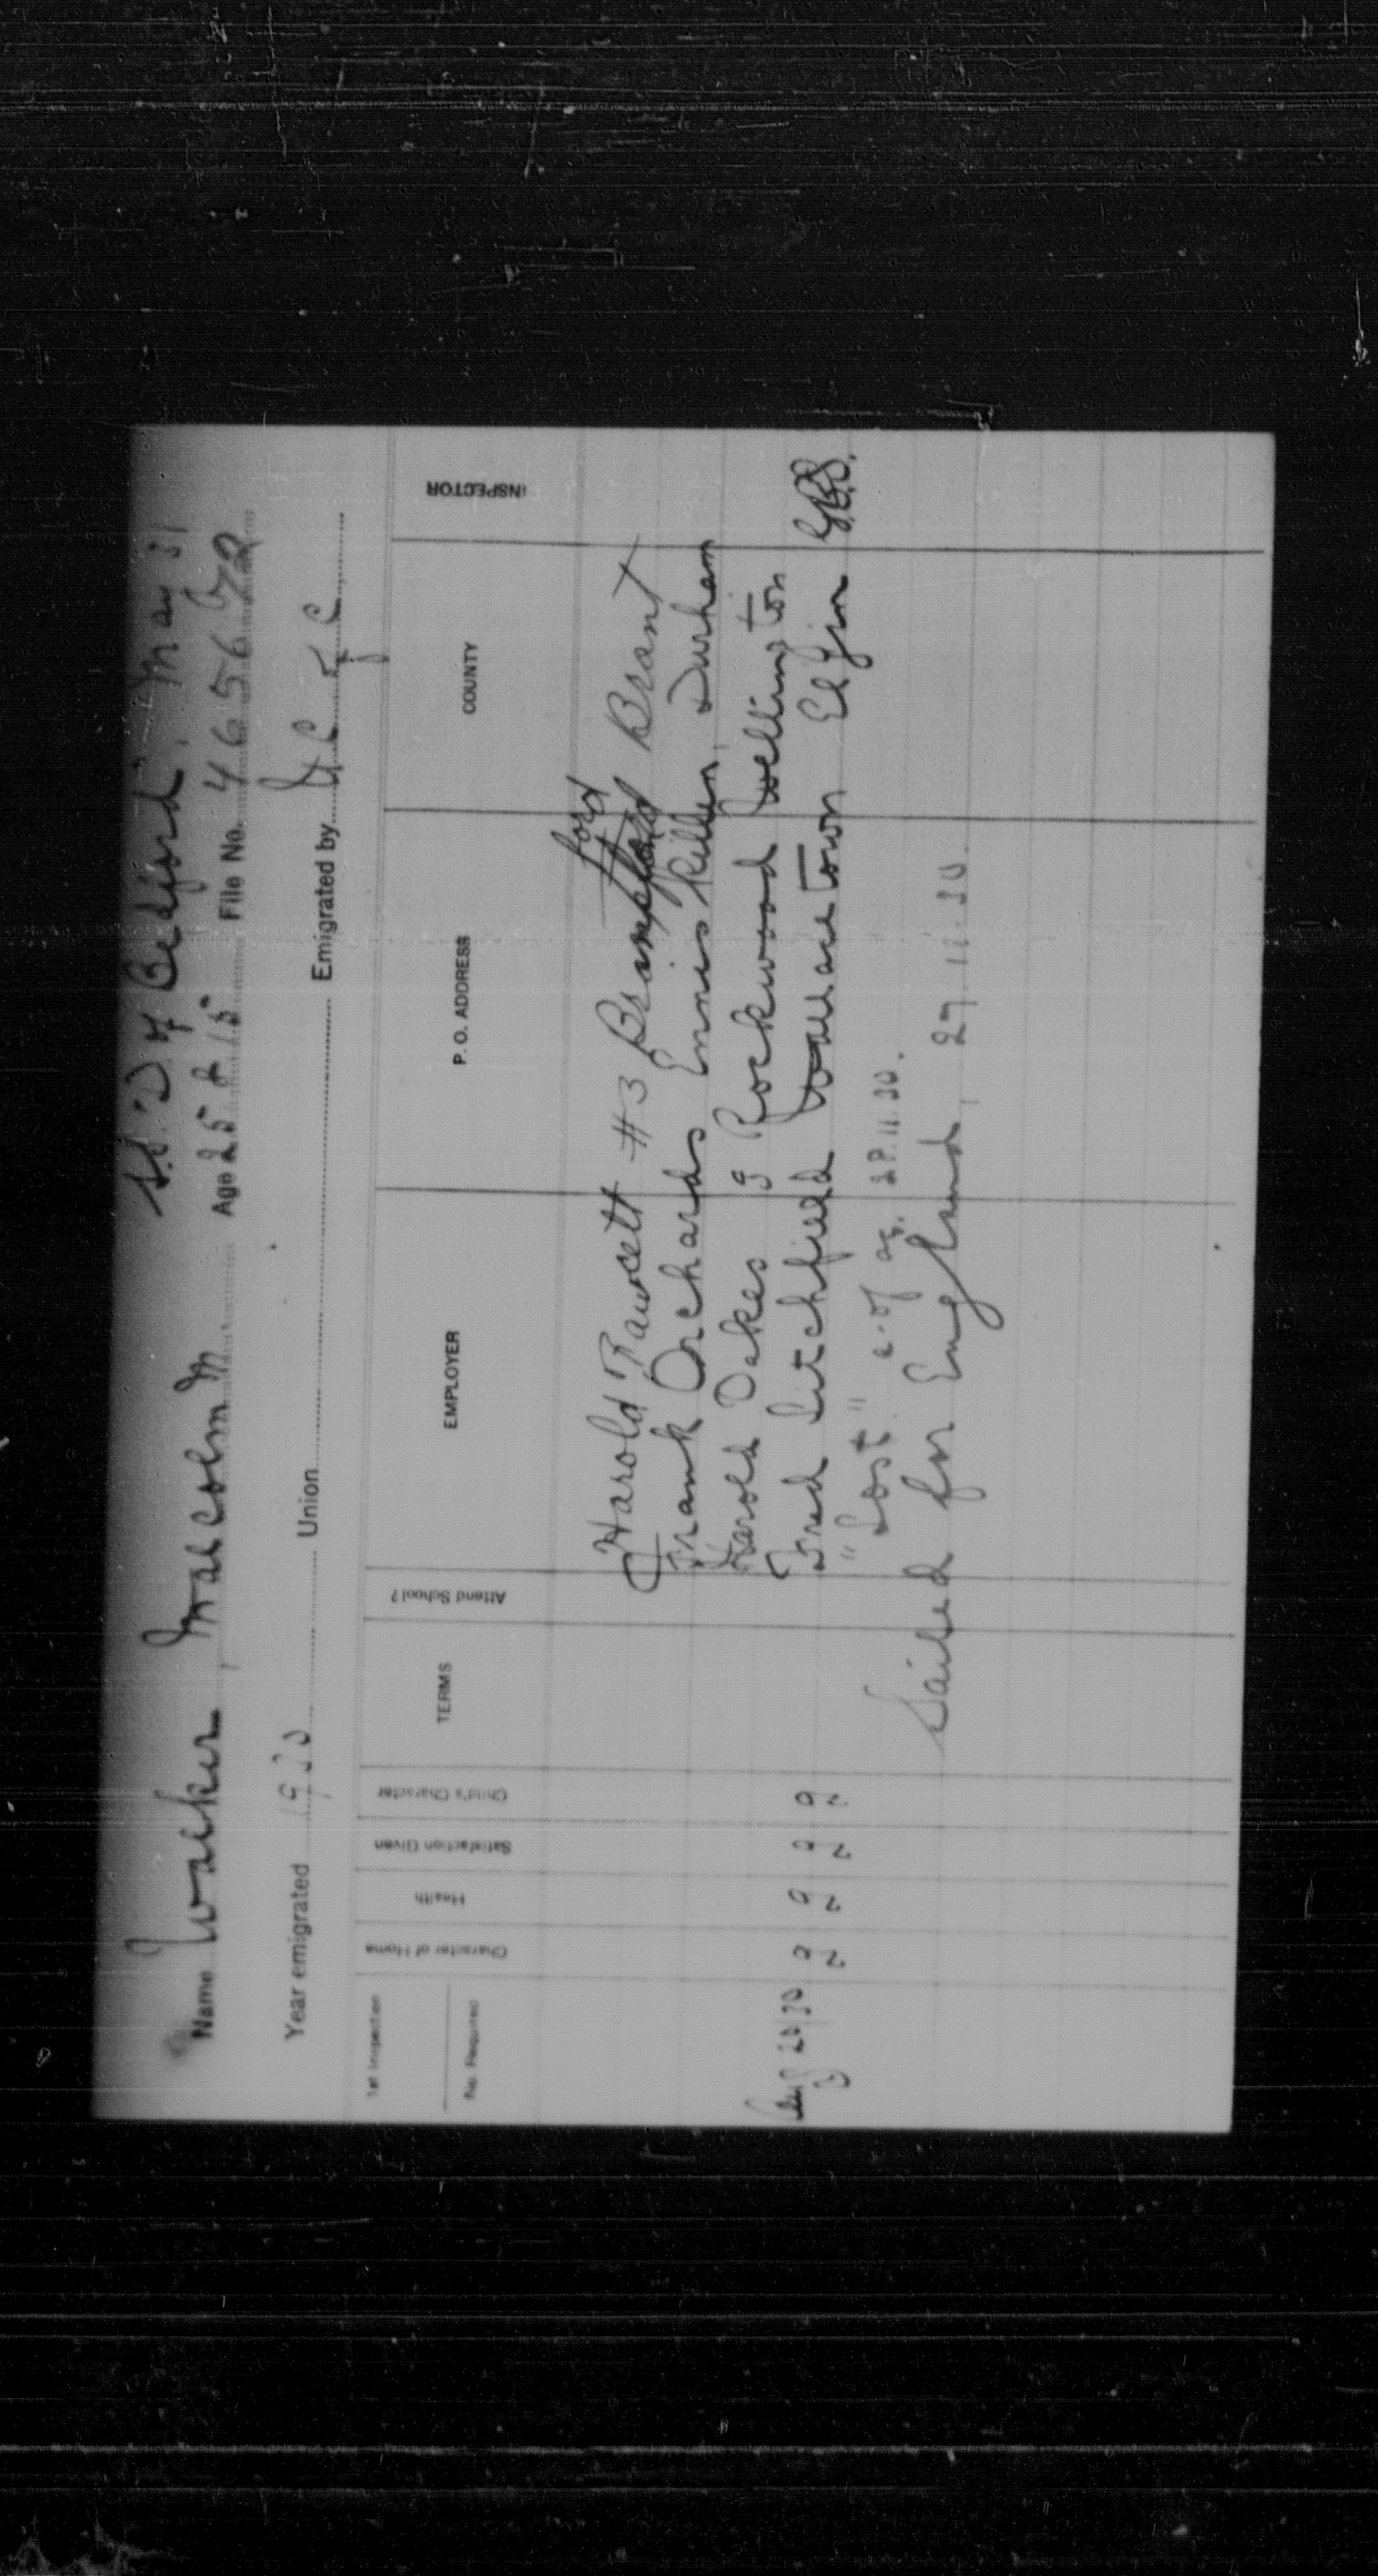 S.S. "D. of Bedford". May 31
Name Walker, Malcolm M Age 25.8.15 File No. 4656
Year emigrated 1930 Union Emigrated by
1st Inspection
No. Required
Character of Home
Health
Satisfaction Given
Child's Character
TERMS
Attend School?
EMPLOYER
P. O. ADDRESS
COUNTY
INSPECTOR
ford
Harold Fawcett #3 Brant
Frank Orchards Enniskillen, Durham
Harold Oakes 3 Rockwood Wellington
Aug 20/30 Fred Litchfield Wallacetown Elgin
"Lost" 28.11.30.
Sailed for England, 29.11.30.